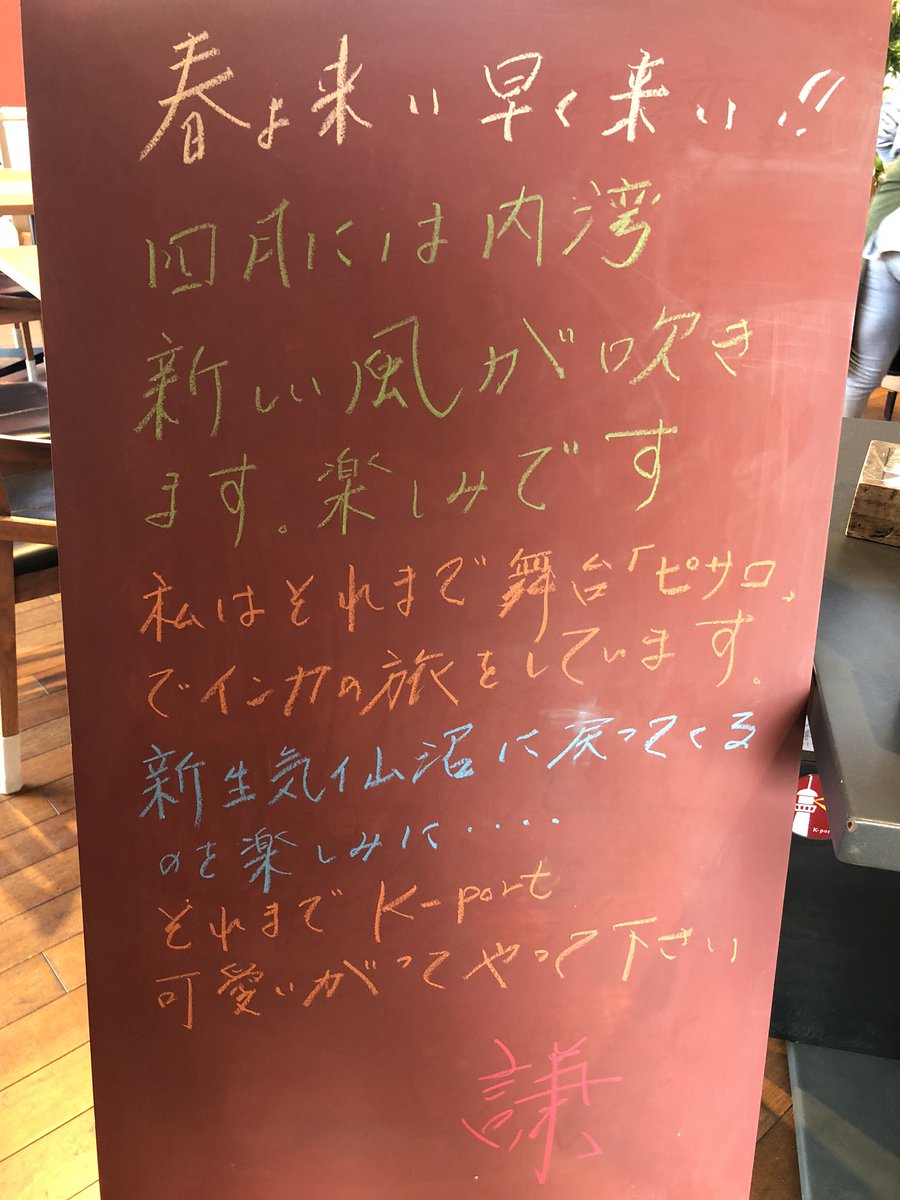 春よ来い早く来い!!
四月には内湾
新しい風が吹き
ます。楽しみです
私はそれまで舞台「ピサロ」
でインカの旅をしています。
新生気仙沼に戻ってくる
のを楽しみに‥‥
それまで K-port
可愛いがってやって下さい
謙
K-por